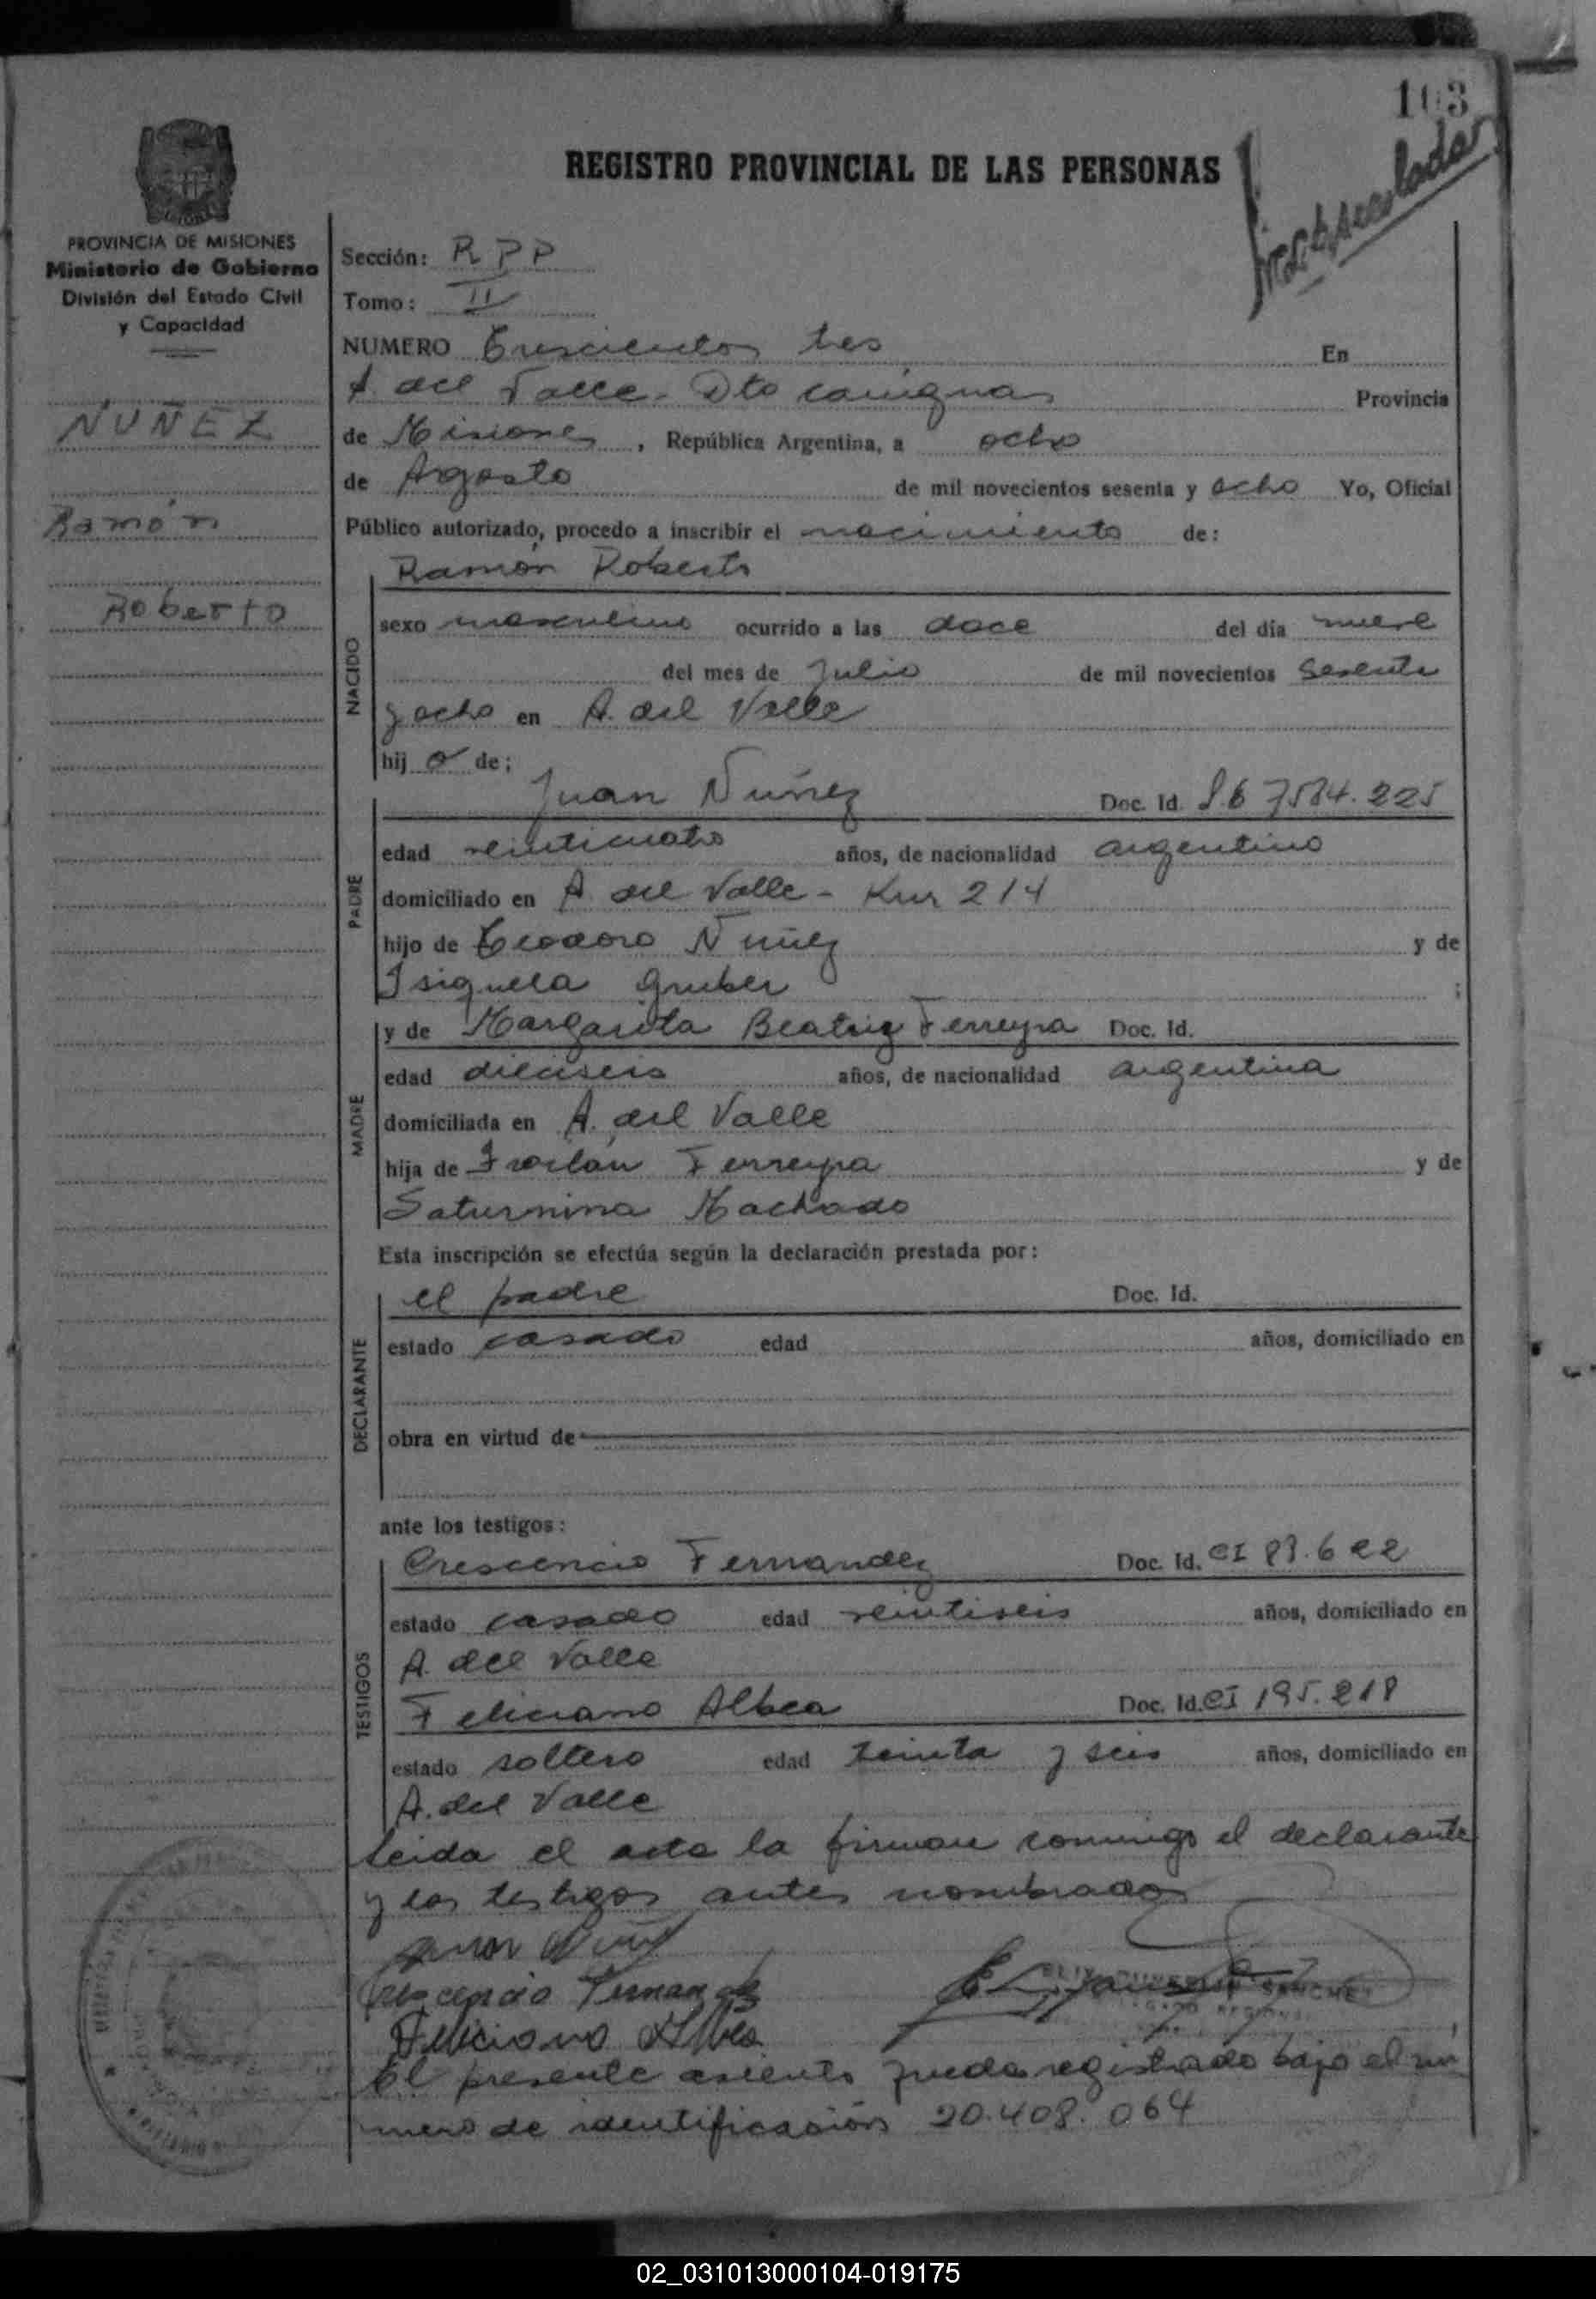 103
Matriculado
REGISTRO PROVINCIAL DE LAS PERSONAS
PROVINCIA DE MISIONES
Ministerio de Gobierno
División del Estado Civil
y Capacidad
NUÑEZ
Ramón
Roberto
Sección: RPP
Tomo: II
NUMERO Trescientos tres En
A. del Valle - Dto Cainguas Provincia
de Misiones, República Argentina, a ocho
de Agosto de mil novecientos sesenta y ocho Yo, Oficial
Público autorizado, procedo a inscribir el nacimiento de:
Ramón Roberto
NACIDO
sexo masculino ocurrido a las doce del día nueve
del mes de Julio de mil novecientos sesenta
y ocho en A. del Valle
hijo de;
PADRE
Juan Nuñez Doc. Id. 7584.225
edad veinticuatro años, de nacionalidad argentino
domiciliado en A. del Valle - Km 214
hijo de Teodoro Nuñez y de
Isiquela Gruber ;
MADRE
y de Margarita Beatriz Ferreyra Doc. Id.
edad dieciseis años, de nacionalidad argentina
domiciliada en A. del Valle
hija de Froilan Ferreyra y de
Saturnina Machado
Esta inscripción se efectúa según la declaración prestada por:
DECLARANTE
el padre Doc. Id.
estado casado edad años, domiciliado en
obra en virtud de
ante los testigos:
TESTIGOS
Crescencio Fernandez Doc. Id. CI 89.622
estado casado edad veintiseis años, domiciliado en
A. del Valle
Feliciano Albea Doc. Id. CI 195.218
estado soltero edad treinta y seis años, domiciliado en
A. del Valle
Leida el acta la firman conmigo el declarante
y los testigos antes nombrados
Juan Nuñez
Crescencio Fernandez
Feliciano Albea
El presente asiento queda registrado bajo el nu
mero de identificación 20.408.064
02_031013000104-019175